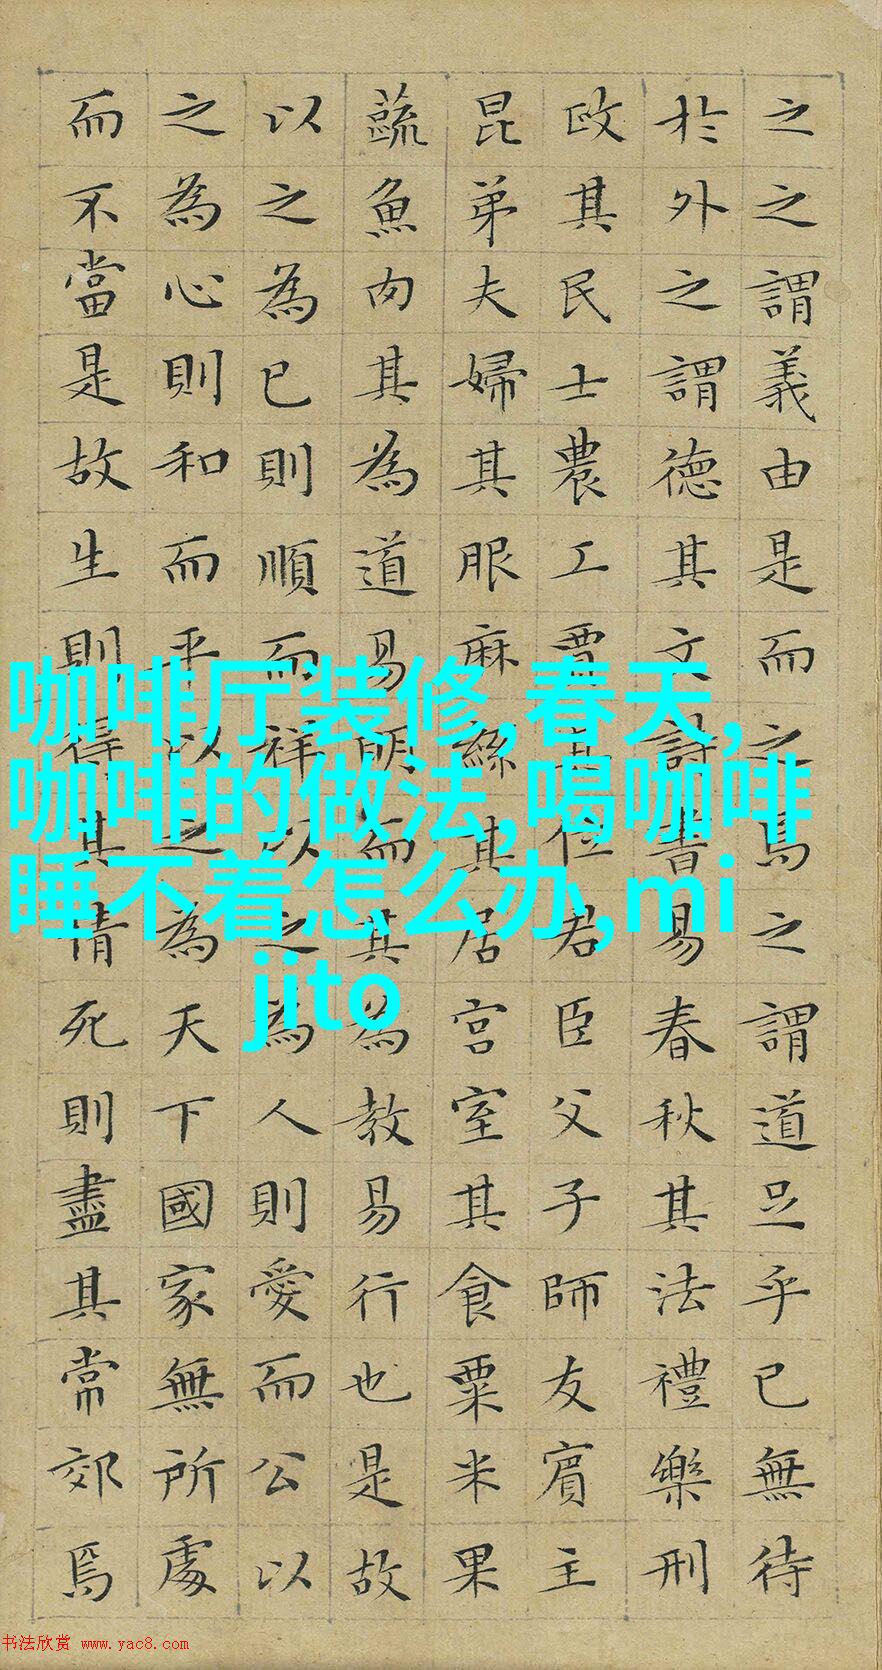 之之謂義由是而之焉之謂道足乎已無待
於外之謂德其文詩書易春秋其法禮樂刑
政其民士農工賈其位君臣父子師友賓主
昆弟夫婦其服麻絲其居宮室其食粟米果
蔬魚肉其為道易明而其為教易行也是故
以之為已則順而祥以之為人則愛而公以
之為心則和而平以之為天下國家無所處
而不當是故生則得其情死則盡其常郊焉
咖啡厅装修,春天,
咖啡的做法,喝咖啡
睡不着怎么办,mi
jito
书法欣赏 www.yac8.com